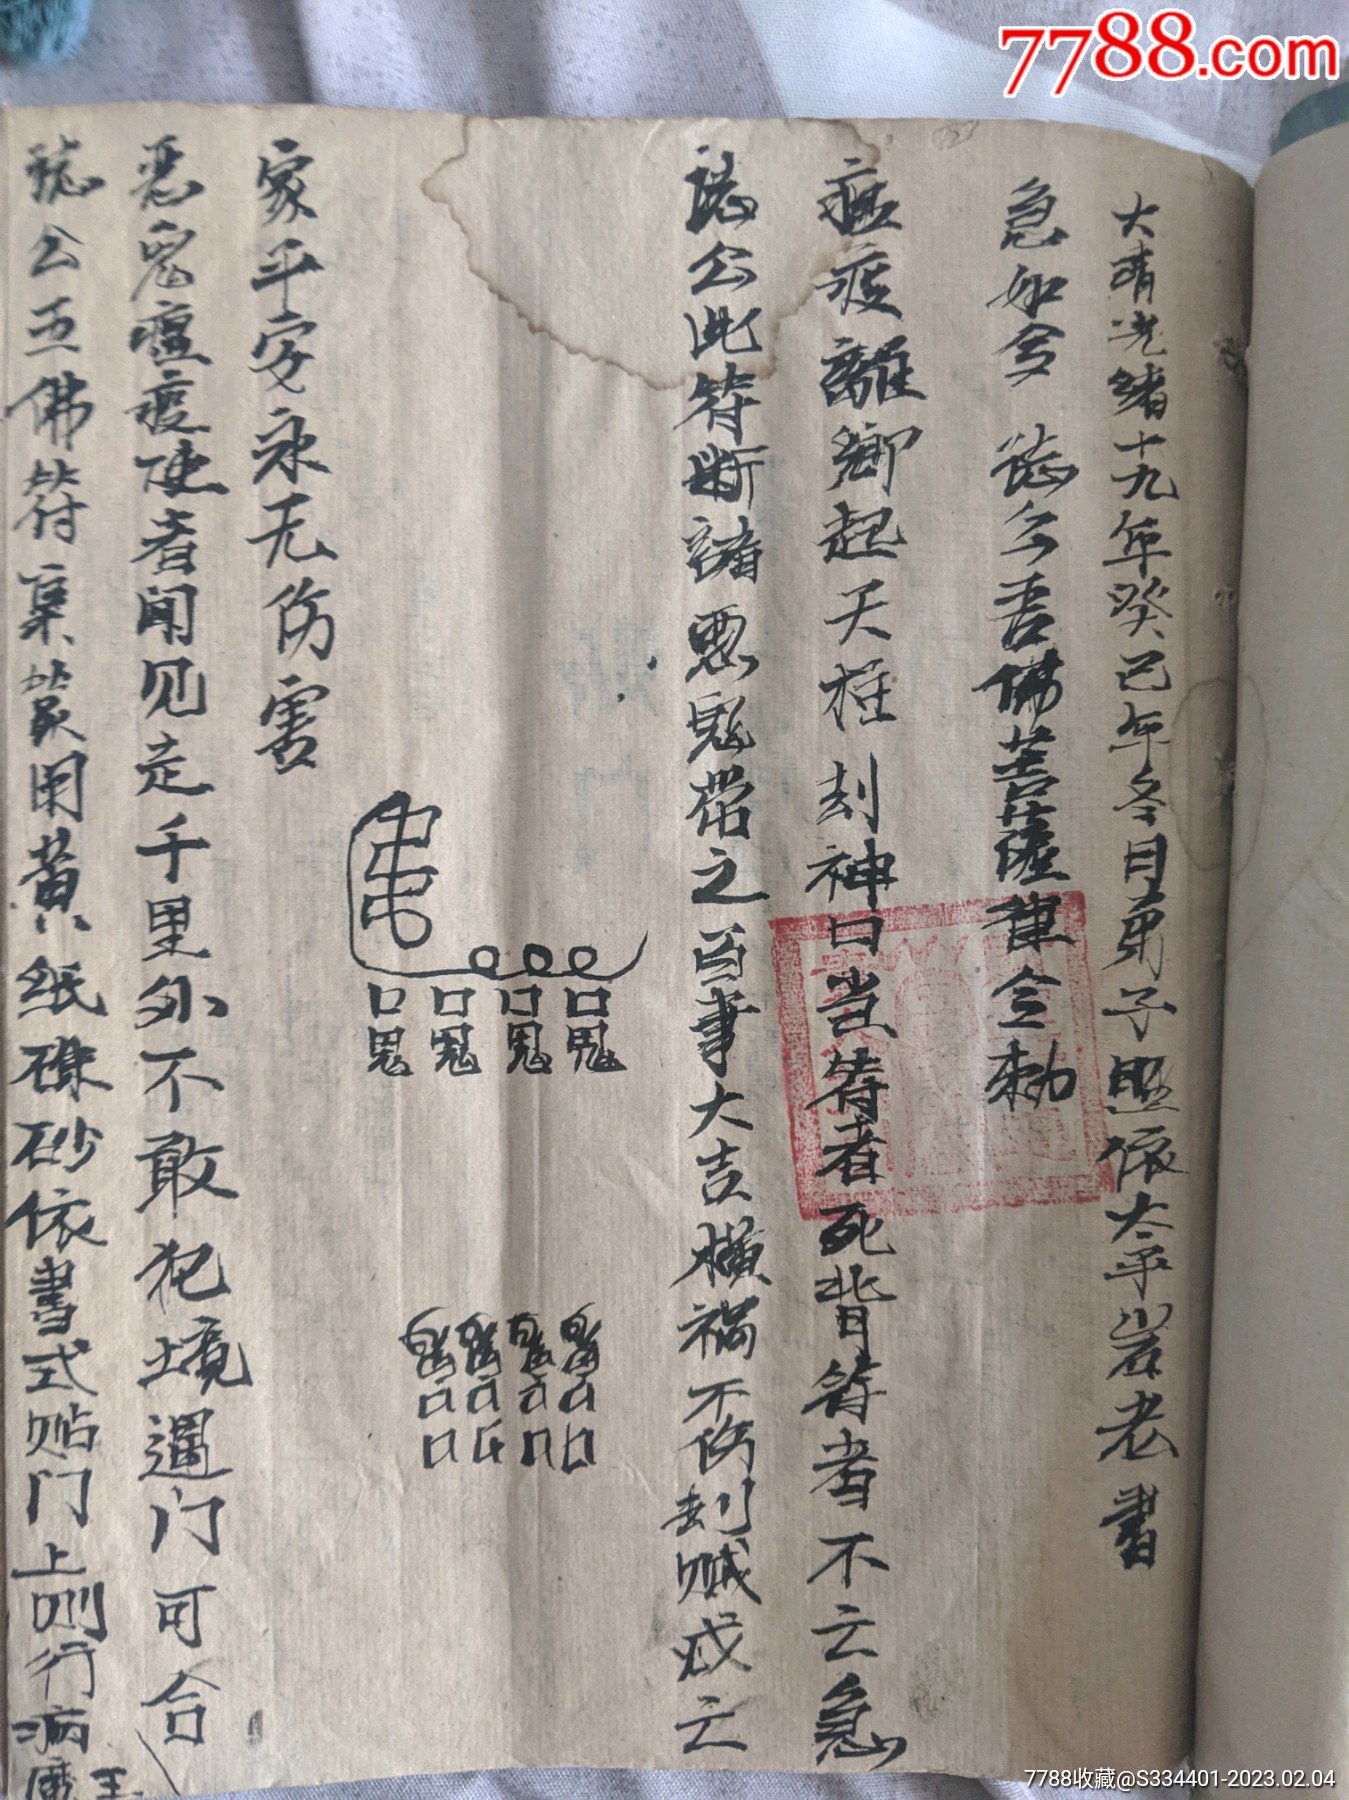 7788.com
大清光绪十九年癸巳年冬月弟子照依太平岩老書
急如令 誌公吾佛菩薩律令勅
瘟疫離鄉起天枉刻神口当符者死背符者不亡急
誌公此符断諸惡鬼帶之百事大吉橫祸不伤刦贼戍亡
口鬼 口鬼 口鬼 口鬼
家平安永无伤害
惡鬼瘟疫使者闻见走千里外不敢犯境逼门可合
誌公五佛符裏用黄纸硃砂依書式贴门上则行病
王
7788收藏@S334401-2023.02.04